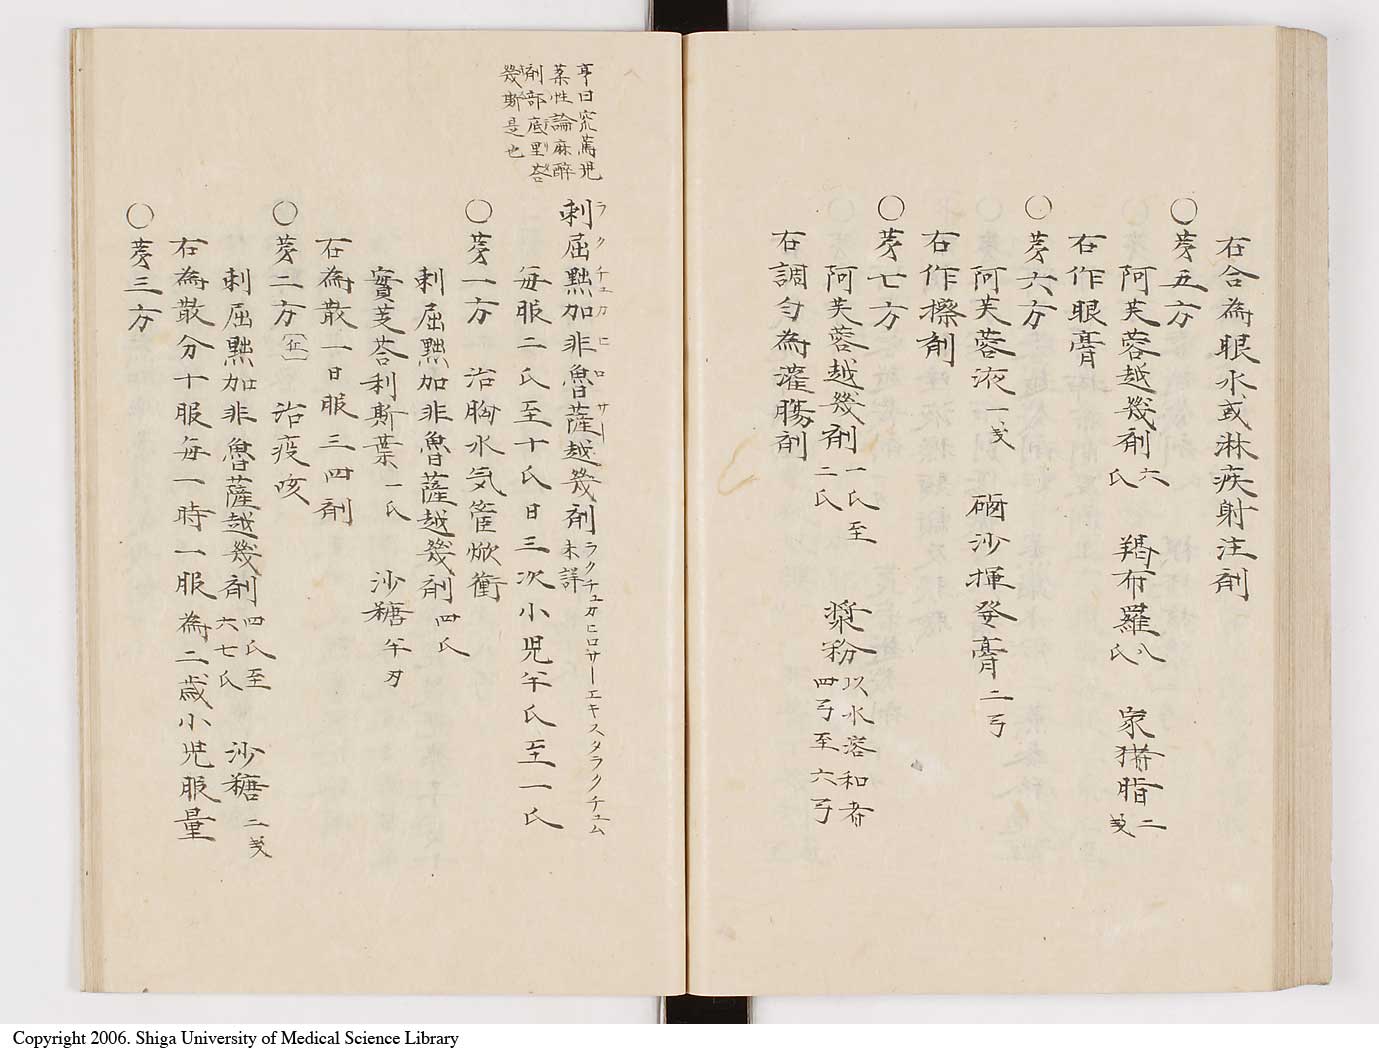 右合為眼水或淋疾射注剤
○第五方
阿芙蓉越幾剤 六氏 羯布羅 八氏 家猪脂 二
右作眼膏
○第六方
阿芙蓉液 一 硇沙揮發膏 二弓
右作擦剤
○第七方
阿芙蓉越幾剤 一氏至二氏 漿粉 以水溶和者四弓至六弓
右調匀為灌腸剤
亨曰窊篤児
薬性論麻酔
剤部底里荅
幾斯是也
刺屈㸃加非魯薩越幾剤 未詳
ラクチュカヒロサー
ラクチュカヒロサーエキスタラクチュム
毎服二氏至十氏日三次小児半氏至一氏
○第一方 治胸水気管焮衝
刺屈㸃加非魯薩越幾剤 四氏
實芰荅利斯葉 一氏 沙糖 半刃
右為散一日服三四剤
○第二方 治疫咳
刺屈㸃加非魯薩越幾剤 四氏至六七氏 沙糖 二
右為散分十服毎一時一服為二歳小児服量
○第三方
Copyright 2006. Shiga University of Medical Science Library